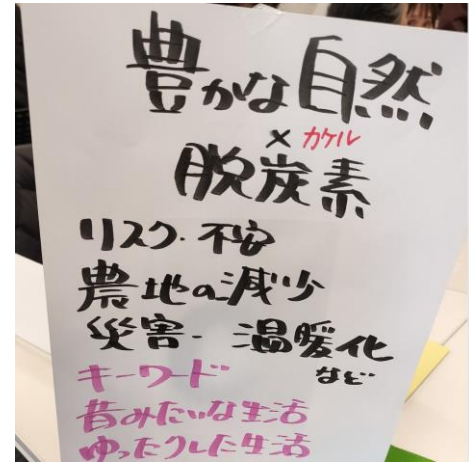 豊かな自然
× カケル
脱炭素
リスク・不安
農地の減少
災害・温暖化
など
キーワード
昔みたいな生活
ゆったりした生活